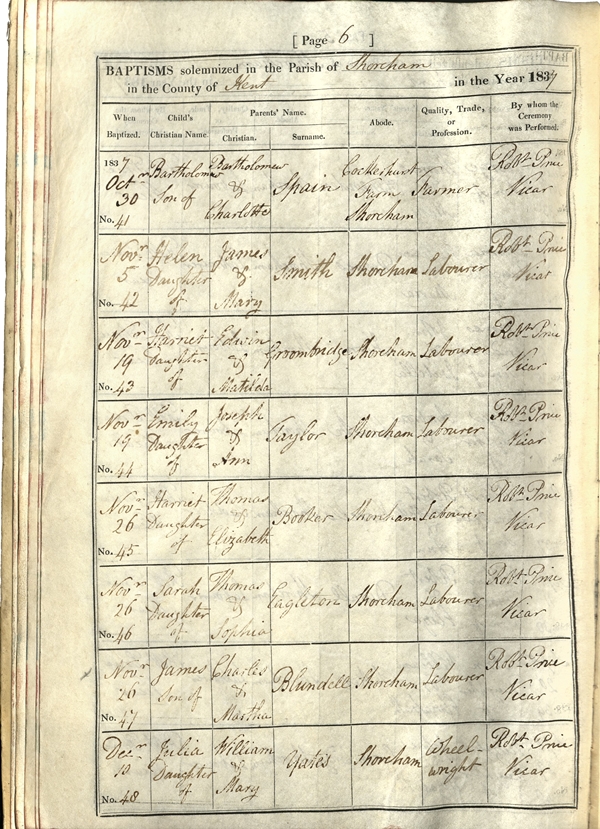 [ Page 6 ]
BAPTISMS solemnized in the Parish of Shoreham
in the County of Kent in the Year 1837
When Baptized. Child's Christian Name. Parents' Name. Christian. Surname. Abode. Quality, Trade, or Profession. By whom the Ceremony was Performed.
1837 Octr 30 No. 41 Bartholomew Son of Bartholomew & Charlotte Spain Cockerhurst Farm Shoreham Farmer Robt. Price Vicar
Novr. 5 No. 42 Helen Daughter of James & Mary Smith Shoreham Labourer Robt. Price Vicar
Novr. 19 No. 43 Harriet Daughter of Edwin & Matilda Groombridge Shoreham Labourer Robt. Price Vicar
Novr. 19 No. 44 Emily Daughter of Joseph & Ann Taylor Shoreham Labourer Robt. Price Vicar
Novr. 26 No. 45 Harriet Daughter of Thomas & Elizabeth Booker Shoreham Labourer Robt. Price Vicar
Novr. 26 No. 46 Sarah Daughter of Thomas & Sophia Eagleton Shoreham Labourer Robt. Price Vicar
Novr. 26 No. 47 James Son of Charles & Martha Blundell Shoreham Labourer Robt. Price Vicar
Decr. 10 No. 48 Julia Daughter of William & Mary Yates Shoreham Wheel-wright Robt. Price Vicar